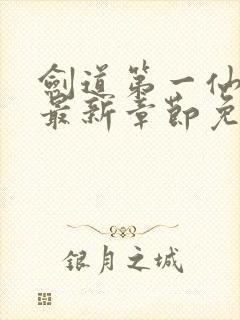 劍道第一仙
最新章節免
銀月之城